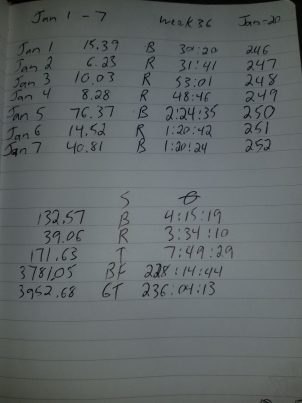 Jan 1 - 7 week 36 Jan-20
Jan 1 15.39 B 30:20 246
Jan 2 6.23 R 31:41 247
Jan 3 10.03 R 53:01 248
Jan 4 8.28 R 48:46 249
Jan 5 76.37 B 2:24:35 250
Jan 6 14.52 R 1:20:42 251
Jan 7 40.81 B 1:20:24 252
S
132.57 B 4:15:19
39.06 R 3:34:10
171.63 T 7:49:29
3781.05 BF 228:14:44
3952.68 GT 236:04:13